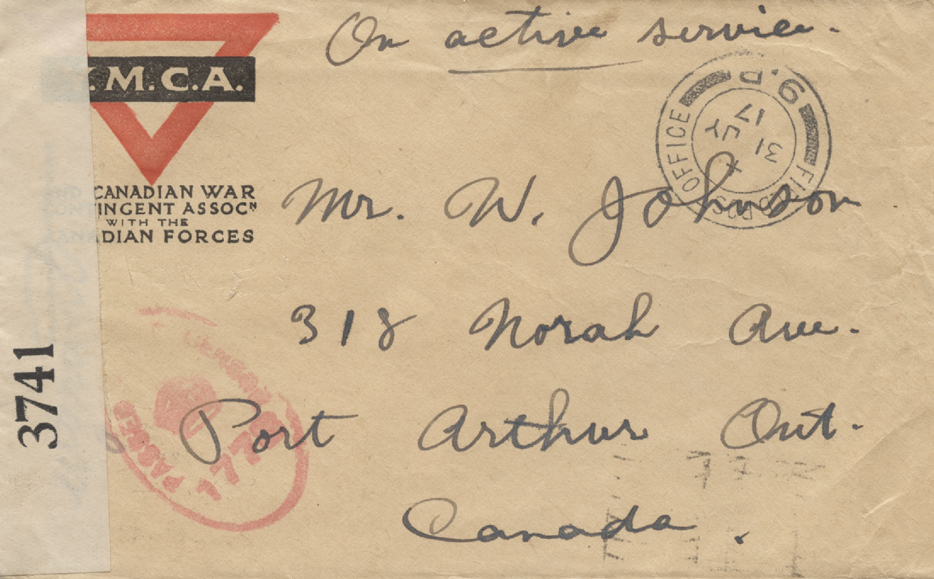 On active service.
.M.C.A.
CANADIAN WAR
TINGENT ASSOCN
WITH THE
DIAN FORCES
FIELD POST OFFICE
9.D
31 JY
17
Mr. W. Johnson
318 Norah Ave.
Port Arthur Ont.
Canada.
PASSED
CENSOR
3741